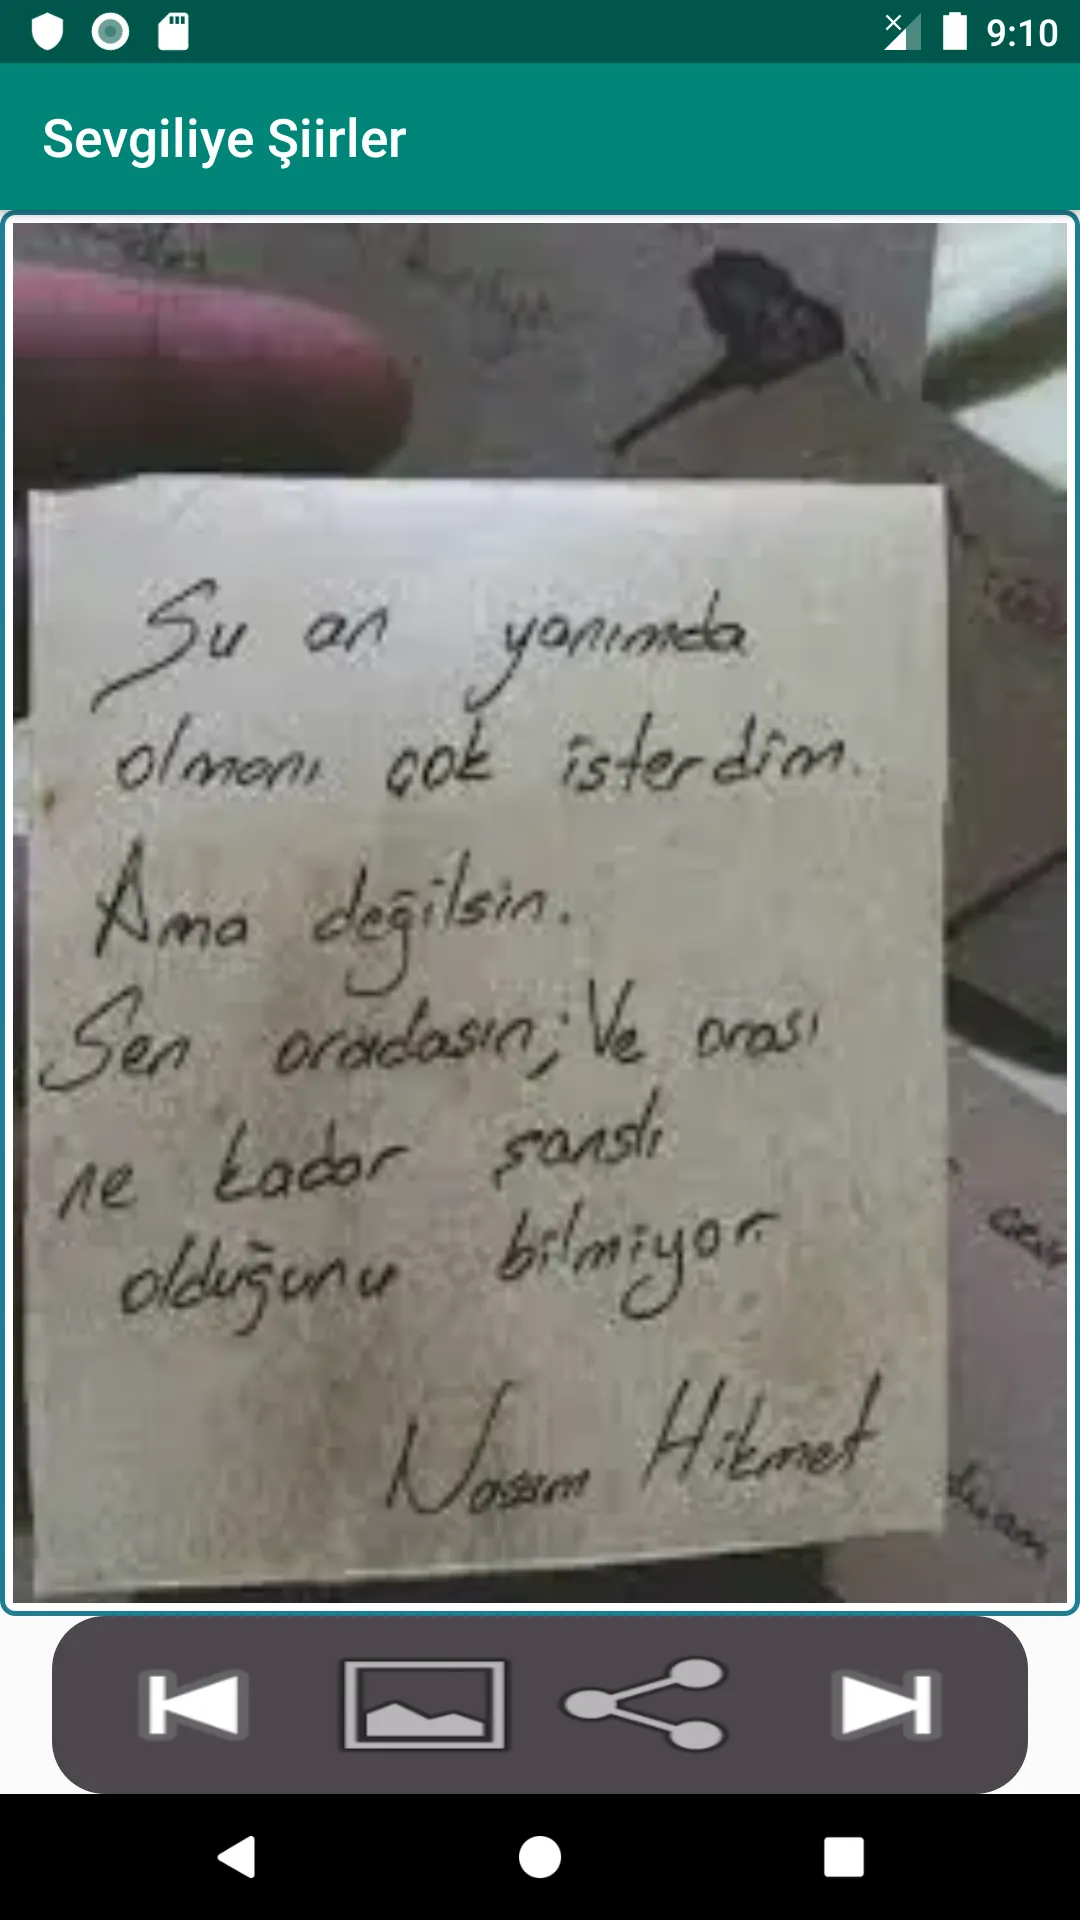 9:10
Sevgiliye Şiirler
Şu an yanımda
olmanı çok isterdim.
Ama değilsin.
Sen oradasın; Ve orası
ne kadar şanslı
olduğunu bilmiyor.
Nazım Hikmet